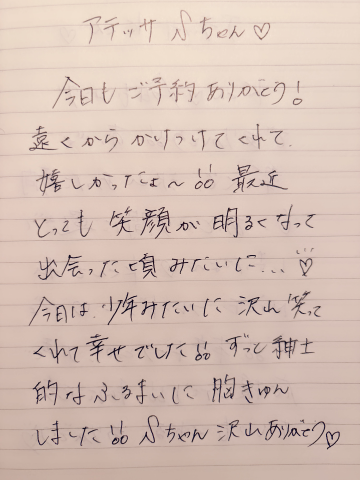 アテッサ Sちゃん♡
今日もご予約ありがとう!
遠くからかけつけてくれて、
嬉しかったよ〜!! 最近
とっても笑顔が明るくなって
出会った頃みたいに...♡
今日は、少年みたいに沢山笑って
くれて幸せでした!! ずっと紳士
的なふるまいに胸きゅん
しました!! Sちゃん沢山ありがとう♡